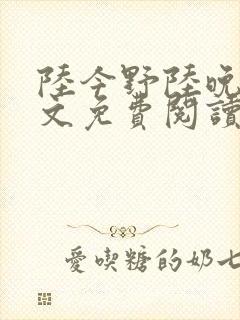 陸今野陸晚
文免費閱讀
愛喫糖的奶七